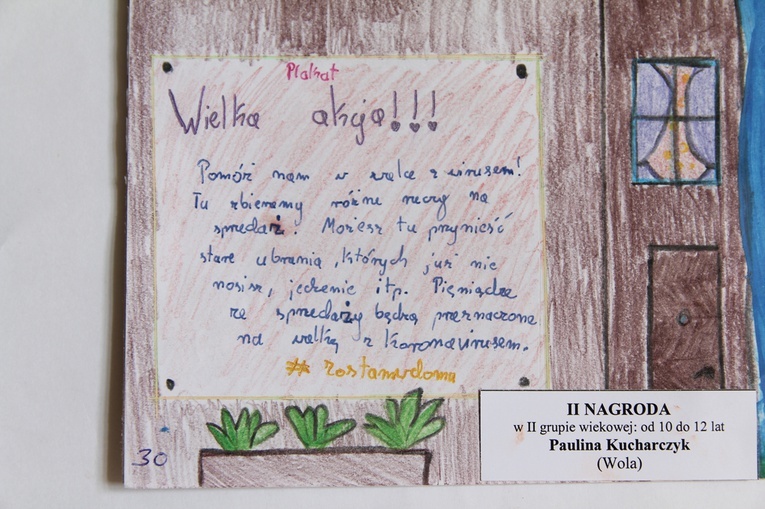 Plakat
Wielka akcja!!!
Pomóż nam w walce z wirusem!
Tu zbieramy różne rzeczy na
sprzedaż! Możesz tu przynieść
stare ubrania, których już nie
nosisz, jedzenie itp. Pieniądze
ze sprzedaży będą przeznaczone
na walkę z koronawirusem.
# zostańwdomu
30
II NAGRODA
w II grupie wiekowej: od 10 do 12 lat
Paulina Kucharczyk
(Wola)